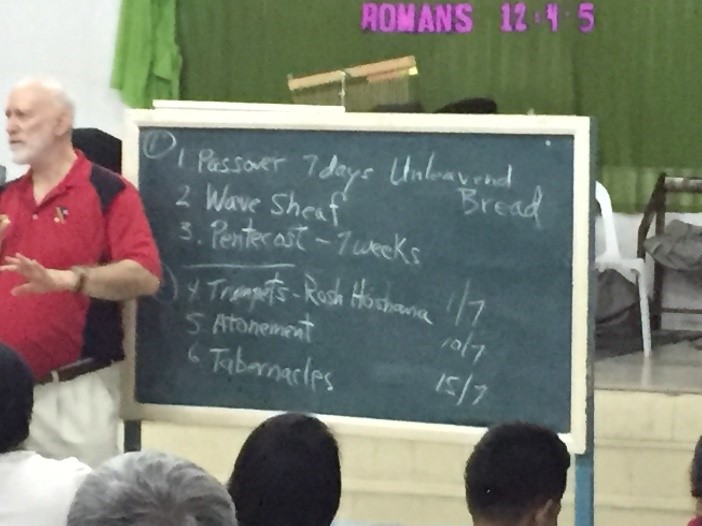 ROMANS 12:4-5
1. Passover 7 days Unleavend
Bread
2 Wave Sheaf
3. Pentecost - 7 weeks
4. Trumpets - Rosh Hoshana 1/7
5. Atonement 10/7
6. Tabernacles 15/7